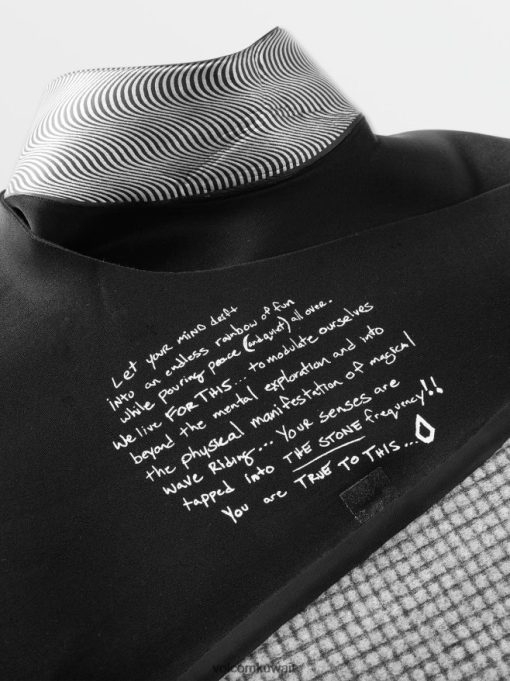 Let your mind drift
into an endless rainbow of fun
while pouring peace (and quiet) all over.
We live FOR THIS... to modulate ourselves
beyond the mental exploration and into
the physical manifestation of magical
wave riding... Your senses are
tapped into THE STONE frequency!!
You are TRUE TO THIS...
volcomkuwait